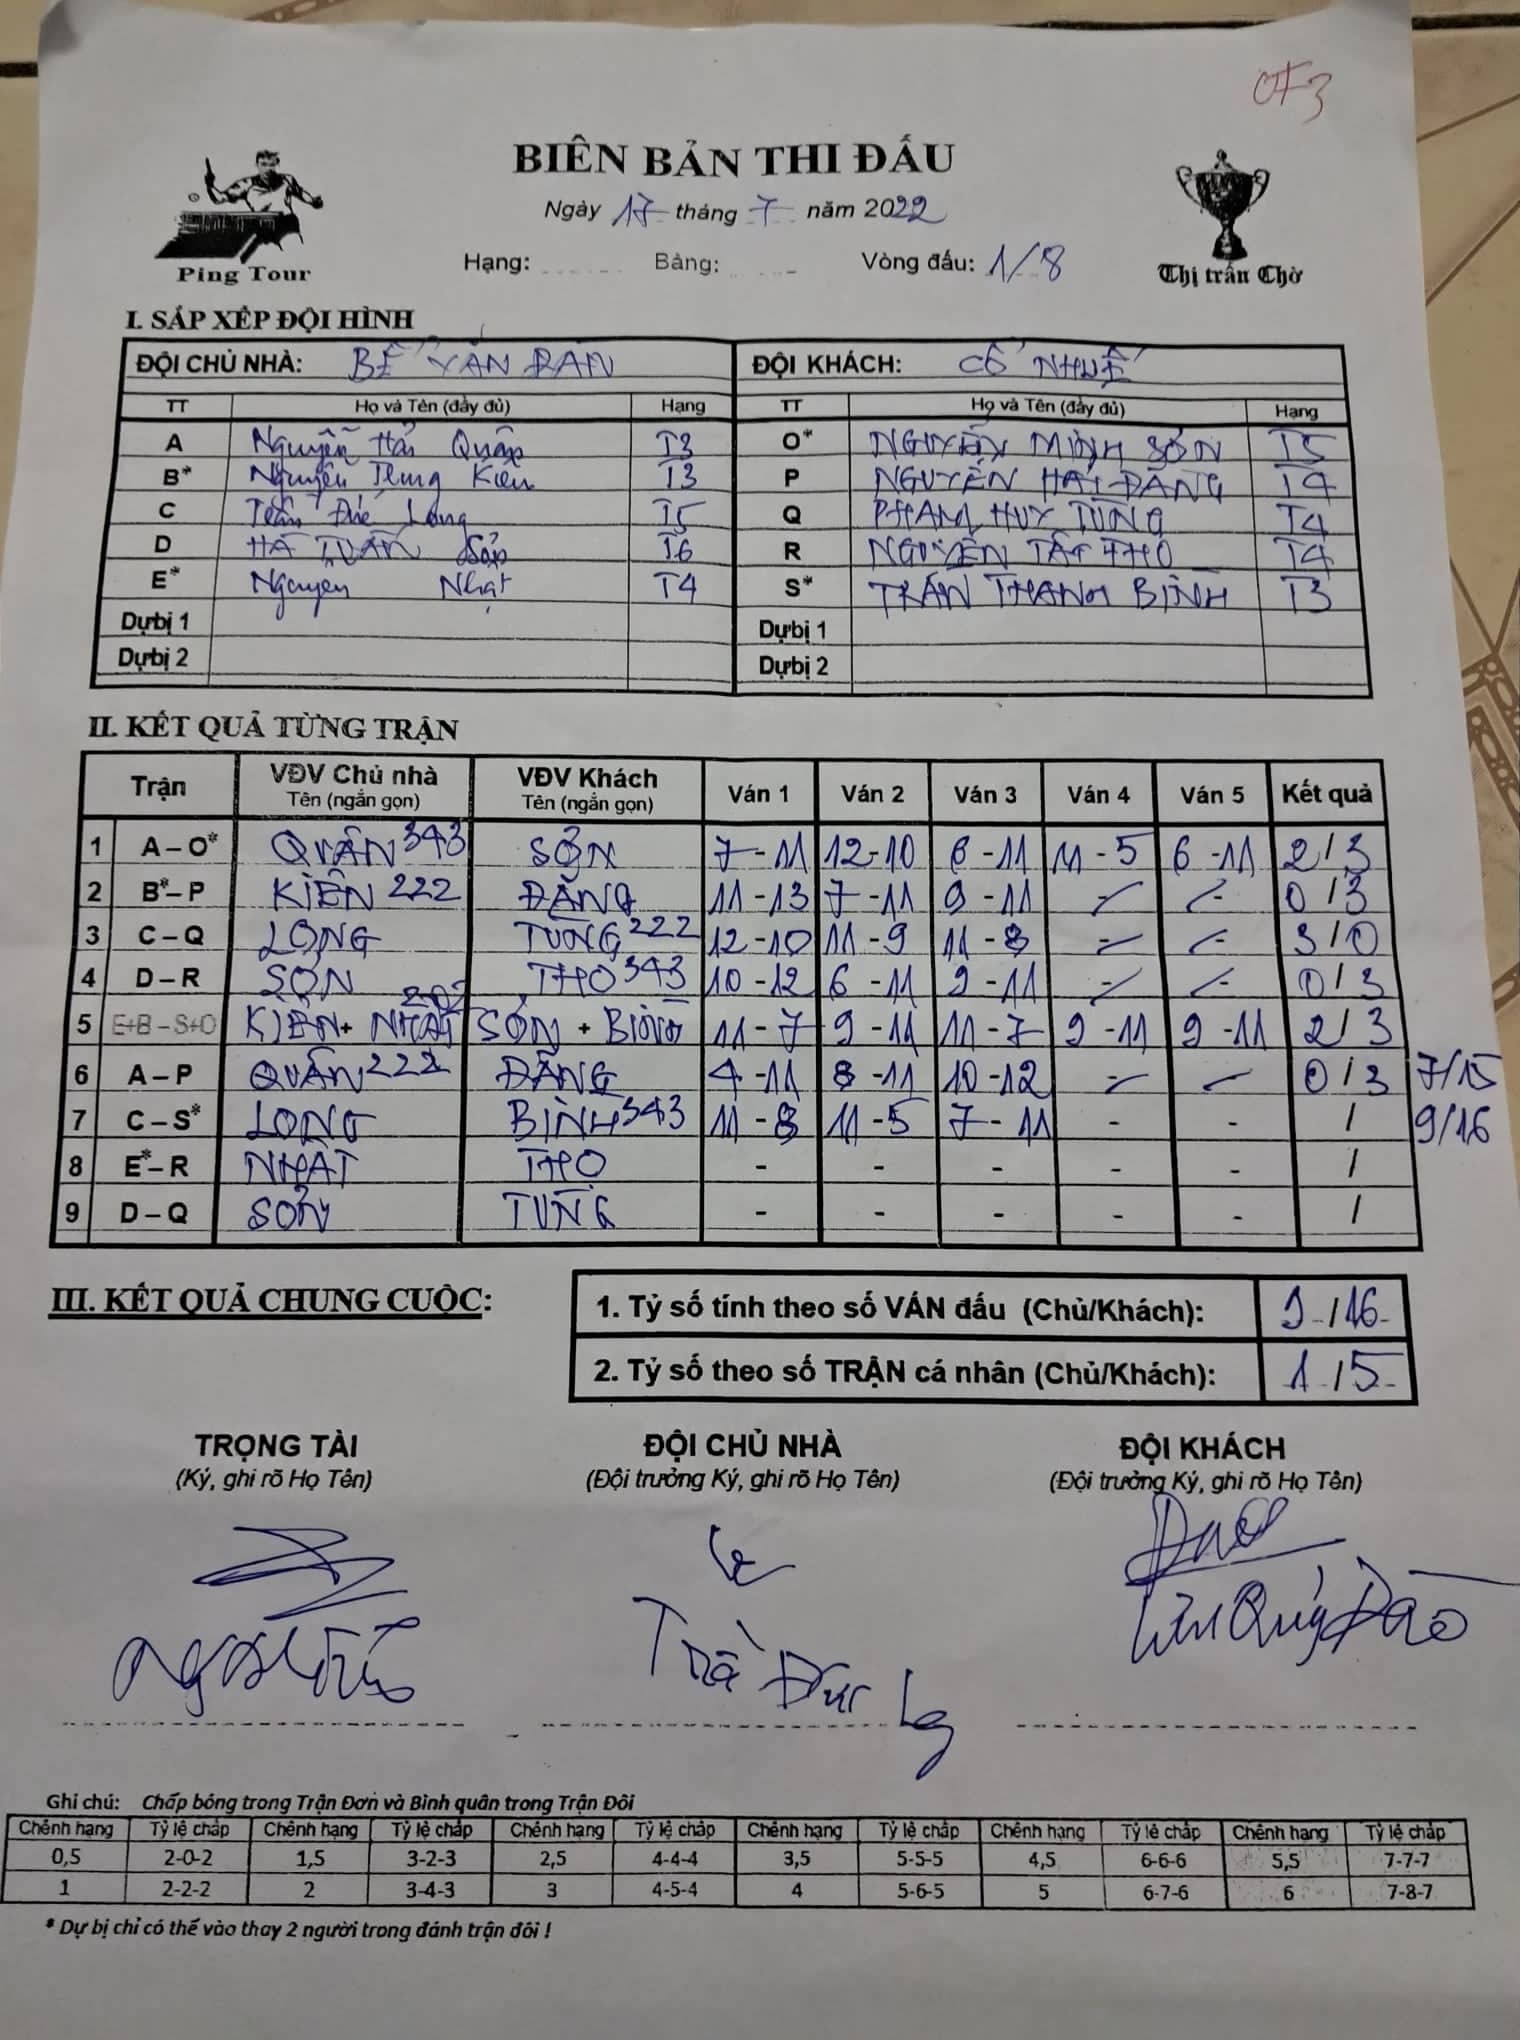 OF3
BIÊN BẢN THI ĐẤU
Ngày 17 tháng 7 năm 2022
Ping Tour
Hạng: Bảng: Vòng đấu: 1/8
Thị trấn Chờ
I. SẮP XẾP ĐỘI HÌNH
ĐỘI CHỦ NHÀ: BẾ VĂN ĐÀN ĐỘI KHÁCH: CỔ NHUẾ
TT Họ và Tên (đầy đủ) Hạng TT Họ và Tên (đầy đủ) Hạng
A Nguyễn Hải Quân T3 O* NGUYỄN MINH SƠN T5
B* Nguyễn Trung Kiên T3 P NGUYỄN HẢI ĐĂNG T4
C Trần Đức Long T5 Q PHẠM HUY TÙNG T4
D HÀ TUẤN Sơn T6 R NGUYỄN TẤT THO T4
E* Nguyễn Nhật T4 S* TRẦN THANH BÌNH T3
Dự bị 1 Dự bị 1
Dự bị 2 Dự bị 2
II. KẾT QUẢ TỪNG TRẬN
Trận VĐV Chủ nhà Tên (ngắn gọn) VĐV Khách Tên (ngắn gọn) Ván 1 Ván 2 Ván 3 Ván 4 Ván 5 Kết quả
1 A – O* QUÂN 343 SƠN 7 - 11 12 - 10 6 - 11 11 - 5 6 - 11 2 / 3
2 B* – P KIÊN 222 ĐĂNG 11 - 13 7 - 11 9 - 11 - - 0 / 3
3 C – Q LONG TÙNG 222 12 - 10 11 - 9 11 - 8 - - 3 / 0
4 D – R SƠN THO 343 10 - 12 6 - 11 9 - 11 - - 0 / 3
5 E+B – S+O KIÊN + NHẬT 202 SƠN + BÌNH 11 - 7 9 - 11 11 - 7 9 - 11 9 - 11 2 / 3
6 A – P QUÂN 222 ĐĂNG 4 - 11 8 - 11 10 - 12 - - 0 / 3 7/15
7 C – S* LONG BÌNH 343 11 - 8 11 - 5 7 - 11 - - / 9/16
8 E* – R NHẬT THO - - - - - /
9 D – Q SƠN TÙNG - - - - - /
III. KẾT QUẢ CHUNG CUỘC:
1. Tỷ số tính theo số VÁN đấu (Chủ/Khách): 9 / 16
2. Tỷ số theo số TRẬN cá nhân (Chủ/Khách): 1 / 5
TRỌNG TÀI ĐỘI CHỦ NHÀ ĐỘI KHÁCH
(Ký, ghi rõ Họ Tên) (Đội trưởng Ký, ghi rõ Họ Tên) (Đội trưởng Ký, ghi rõ Họ Tên)
Quý Đào
Ghi chú: Chấp bóng trong Trận Đơn và Bình quân trong Trận Đôi
Chênh hạng Tỷ lệ chấp Chênh hạng Tỷ lệ chấp Chênh hạng Tỷ lệ chấp Chênh hạng Tỷ lệ chấp Chênh hạng Tỷ lệ chấp Chênh hạng Tỷ lệ chấp
0,5 2-0-2 1,5 3-2-3 2,5 4-4-4 3,5 5-5-5 4,5 6-6-6 5,5 7-7-7
1 2-2-2 2 3-4-3 3 4-5-4 4 5-6-5 5 6-7-6 6 7-8-7
* Dự bị chỉ có thể vào thay 2 người trong đánh trận đôi !